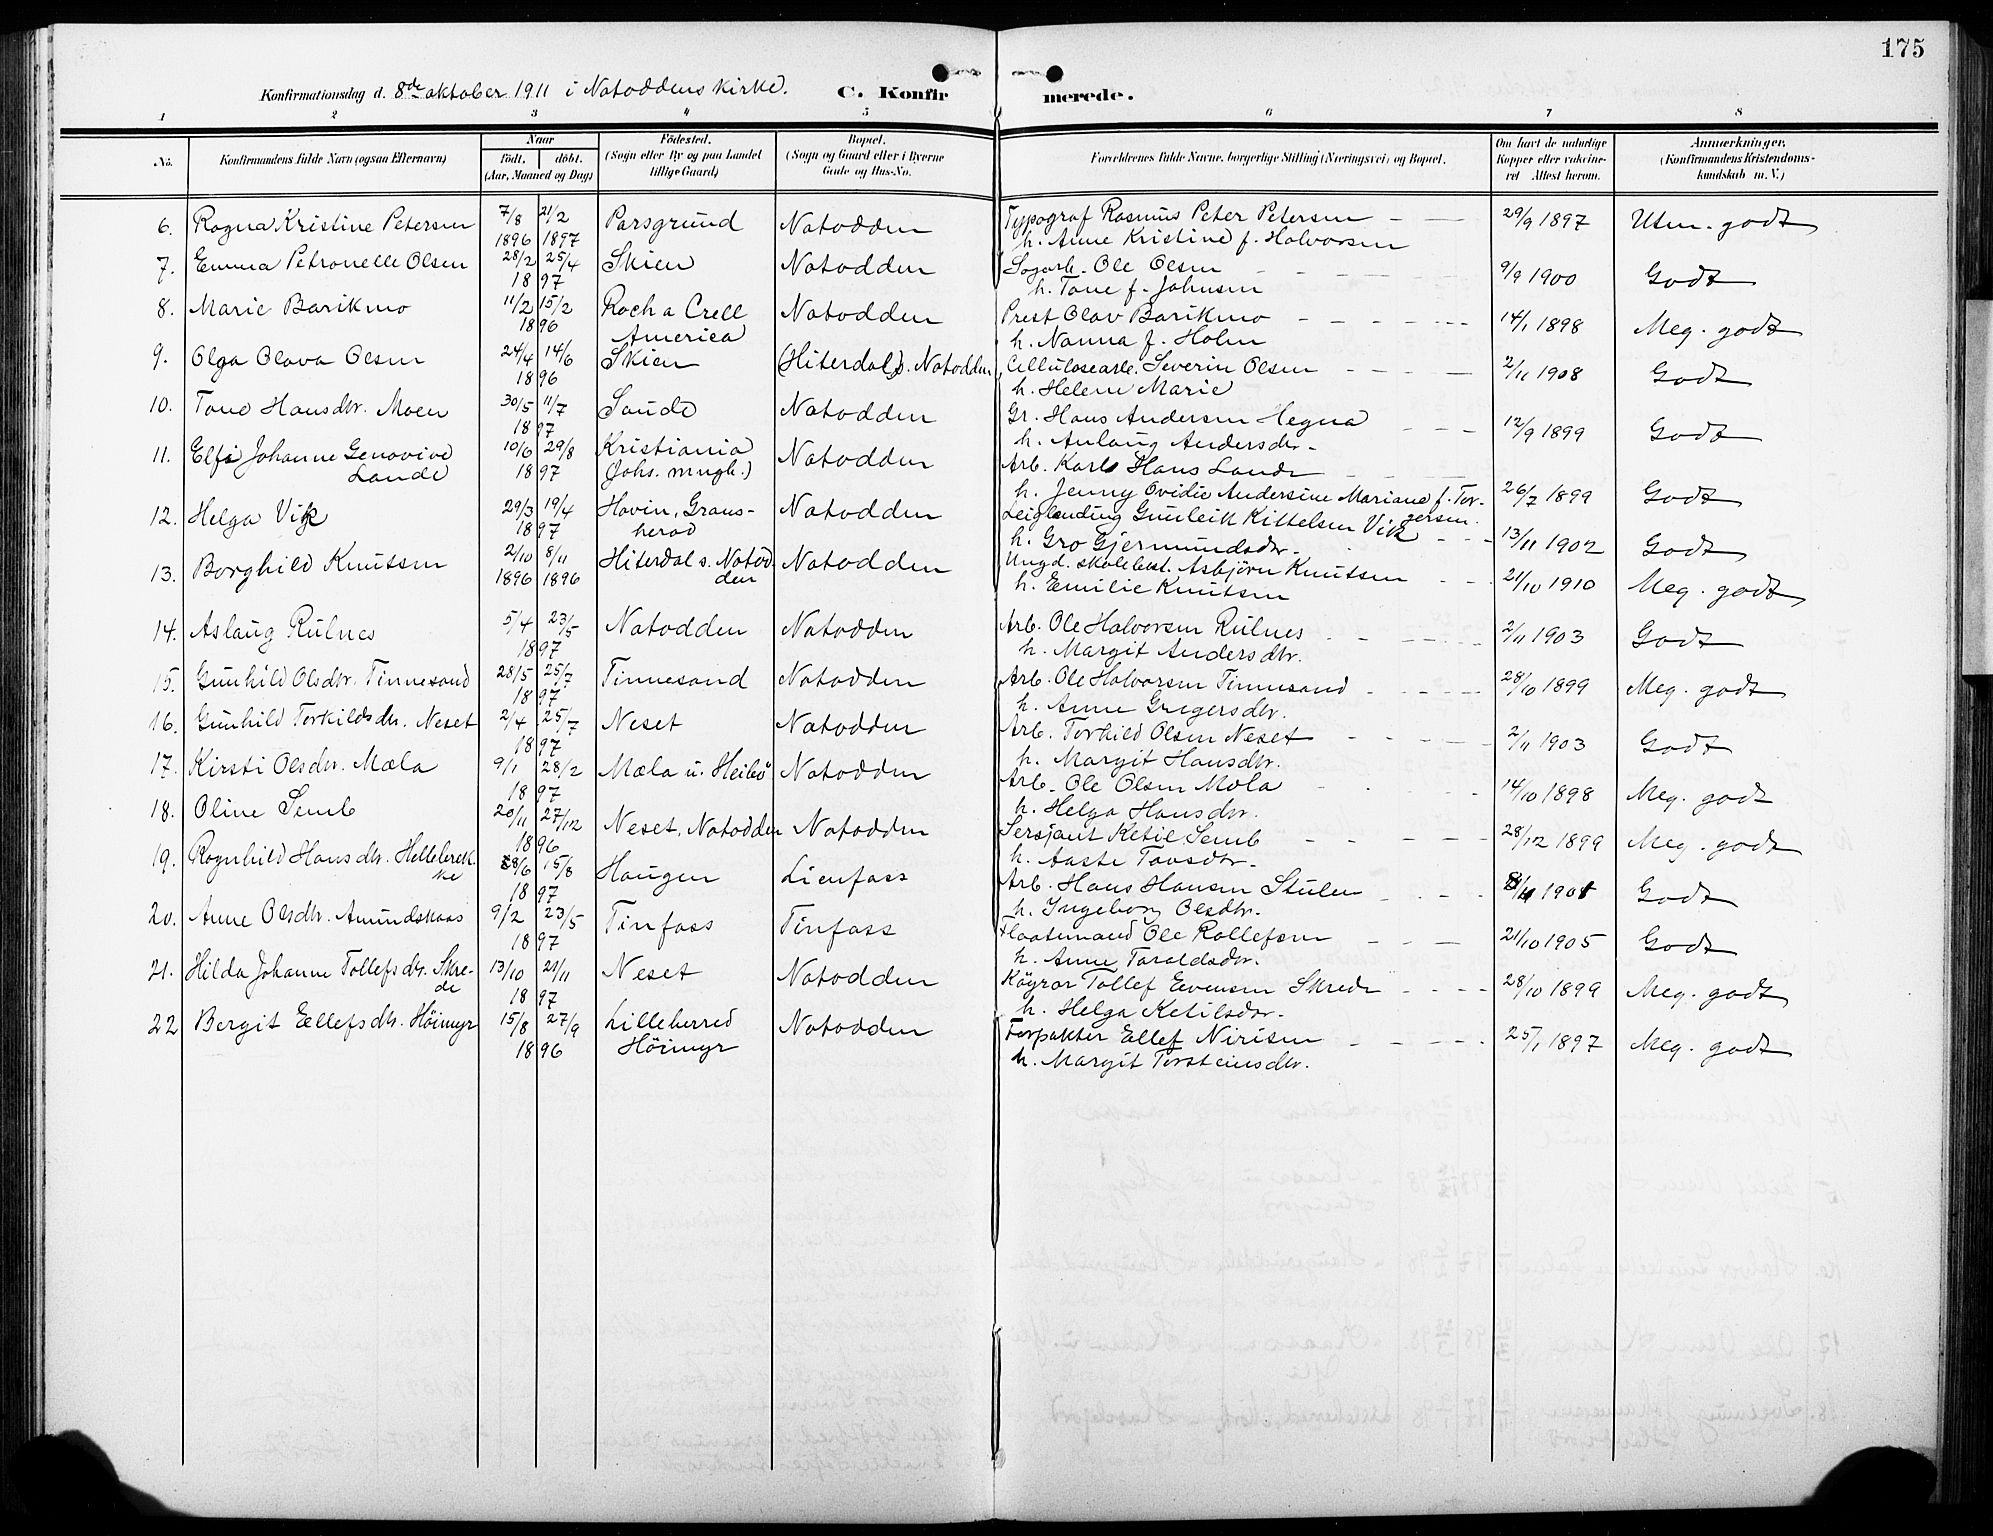 175
Konfirmationsdag d. 8de oktober 1911 i Notoddens kirke. C. Konfirmerede.
1 2 3 4 5 6 7 8
No. Konfirmandens fulde Navn (ogsaa Efternavn) Naar födt. döbt. (Aar, Maaned og Dag) Födested. (Sogn eller By og paa Landet tillige Gaard) Bopæl. (Sogn og Gaard eller i Byerne Gade og Hus-No. Forældrenes fulde Navne, borgerlige Stilling (Næringsvei) og Bopæl. Om havt de naturlige Kopper eller vakcineret Attest herom. Anmærkninger. (Konfirmandens Kristendomskundskab m. V.)
6. Ragna Kristine Petersen 7/8 1896 21/2 1897 Porsgrund Notodden Typograf Rasmus Peter Petersen 29/9 1897 Utm. godt
h. Anne Kristine f. Halvorsen
7. Emma Petronelle Olsen 28/2 25/4 1897 Skien Notodden Sagarb. Ole Olsen 9/9 1900 Godt
h. Tone f. Johnsen
8. Marie Barikmo 11/2 15/2 1896 Roch a Crell America Notodden Prest Olav Barikmo 14/1 1898 Meg. godt
h. Nanna f. Holm
9. Olga Olava Olsen 24/4 14/6 1896 Skien (Hiterdal) s. Notodden Cellulosearb. Severin Olsen 2/11 1908 Godt
h. Helene Marie
10. Tone Hansdtr. Moen 30/5 11/7 1897 Saude Notodden Gr. Hans Andersen Hegna 12/9 1899 Godt
h. Anlaug Andersdtr.
11. Elfi Johanne Genovive Lande 10/6 29/8 1897 Kristiania (Johs. mngh.) Notodden Arb. Karl Hans Lande 26/7 1899 Godt
h. Jenny Ovidie Andersine Mariane f. Torgersen.
12. Helga Vik 29/3 19/4 1897 Hovin, Gransherad Notodden Leiglending Gunleik Kittelsen Vik 13/11 1902 Godt
h. Gro Gjermundsdtr.
13. Borghild Knutsen 2/10 1896 8/11 1896 Hiterdal s. Notodden Notodden Ungd. skolebest. Asbjörn Knutsen 21/10 1910 Meg. godt
h. Emilie Knutsen
14. Aslaug Rulnes 5/4 23/5 1897 Notodden Notodden Arb. Ole Halvorsen Rulnes 2/11 1903 Godt
h. Margit Andersdtr.
15. Gunhild Olsdtr. Tinnesand 28/5 25/7 1897 Tinnesand Notodden Arb. Ole Halvorsen Tinnesand 28/10 1899 Meg. godt
h. Anne Gregersdtr.
16. Gunhild Torkildsdtr. Neset 2/4 25/7 1897 Neset Notodden Arb. Torkild Olsen Neset 2/11 1903 Godt
h. Margit Hansdtr.
17. Kirsti Olsdtr. Mæla 9/1 28/2 1897 Mæla u. Heibö Notodden Arb. Ole Olsen Mæla 14/10 1898 Meg. godt
h. Helga Hansdtr.
18. Oline Semb 20/11 27/12 1896 Neset, Notodden Notodden Sersjant Ketil Semb 28/12 1899 Meg. godt
h. Aaste Tovsdtr.
19. Ragnhild Hansdtr. Hellebrekke 28/6 15/8 1897 Haugen Lienfoss Arb. Hans Hansen Stulen Godt
h. Ingeborg Olsdtr.
20. Anne Olsdtr. Amundskaas 9/2 23/5 1897 Tinfoss Tinfoss Flaatemand Ole Rollefsen 21/10 1905 Godt
h. Anne Taraldsdtr.
21. Hilda Johanne Tollefsdtr. Skrede 13/10 21/11 1897 Neset Notodden Köyrar Tollef Evensen Skrede 28/10 1899 Meg. godt
h. Helga Ketilsdtr.
22 Bergit Ellefsdtr. Höimyr 15/8 27/9 1896 Lilleherred Höimyr Notodden Forpakter Ellef Nirisen 25/1 1897 Meg. godt
h. Margit Torsteinsdtr.